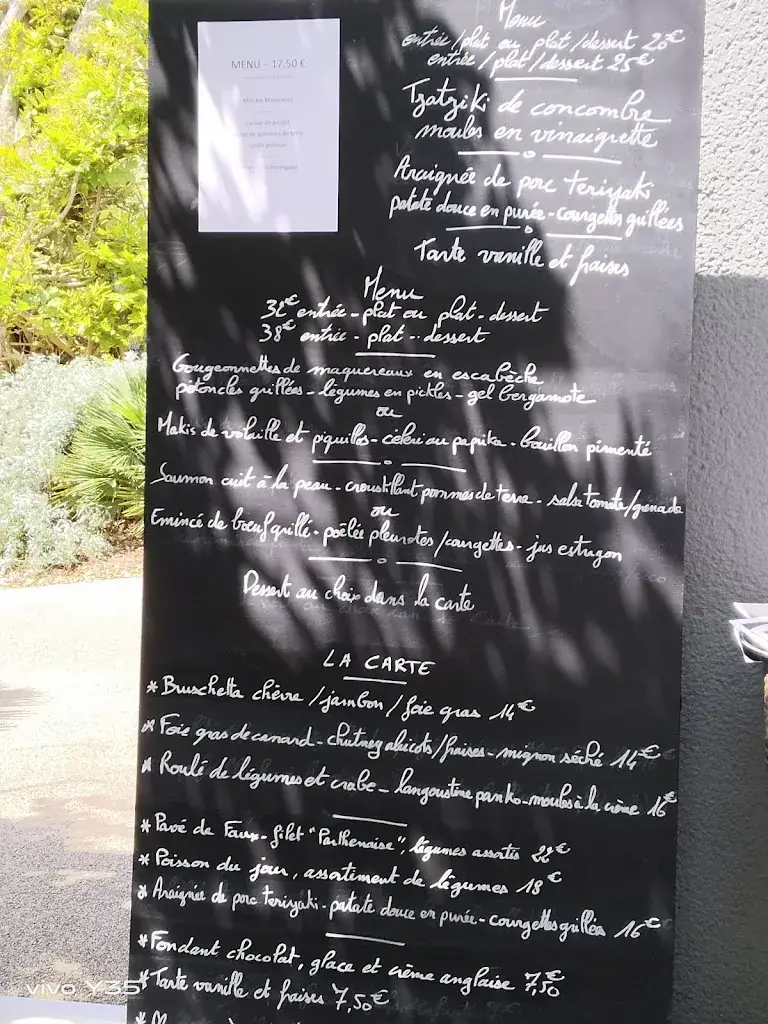 MENU – 17,50 €
Menu
entrée/plat ou plat/dessert 20€
entrée/plat/dessert 25€
Tzatziki de concombre
moules en vinaigrette
Araignée de porc teriyaki
patate douce en purée - courgettes grillées
Tarte vanille et fraises
Menu
entrée - plat ou plat - dessert
38€ entrée - plat - dessert
Gougeonnettes de maquereaux en escabèche
pétoncles grillées - légumes en pickles - gel bergamote
ou
Makis de volaille et piquillos - céleri au paprika - bouillon pimenté
Saumon cuit à la peau - croustillant pommes de terre - salsa tomate/grenade
ou
Emincé de bœuf grillé - poêlée pleurotes/courgettes - jus estragon
Dessert au choix dans la carte
LA CARTE
* Bruschetta chèvre/jambon/foie gras 14€
* Foie gras de canard - chutney abricots/fraises - mignon séché 14€
* Roulé de légumes et crabe - langoustine panko - moules à la crème 16€
* Pavé de Faux-filet "Parthenaise", légumes assortis 22€
* Poisson du jour, assortiment de légumes 18€
* Araignée de porc teriyaki - patate douce en purée - courgettes grillées 16€
* Fondant chocolat, glace et crème anglaise 7,50€
* Tarte vanille et fraises 7,50€
vivo Y35